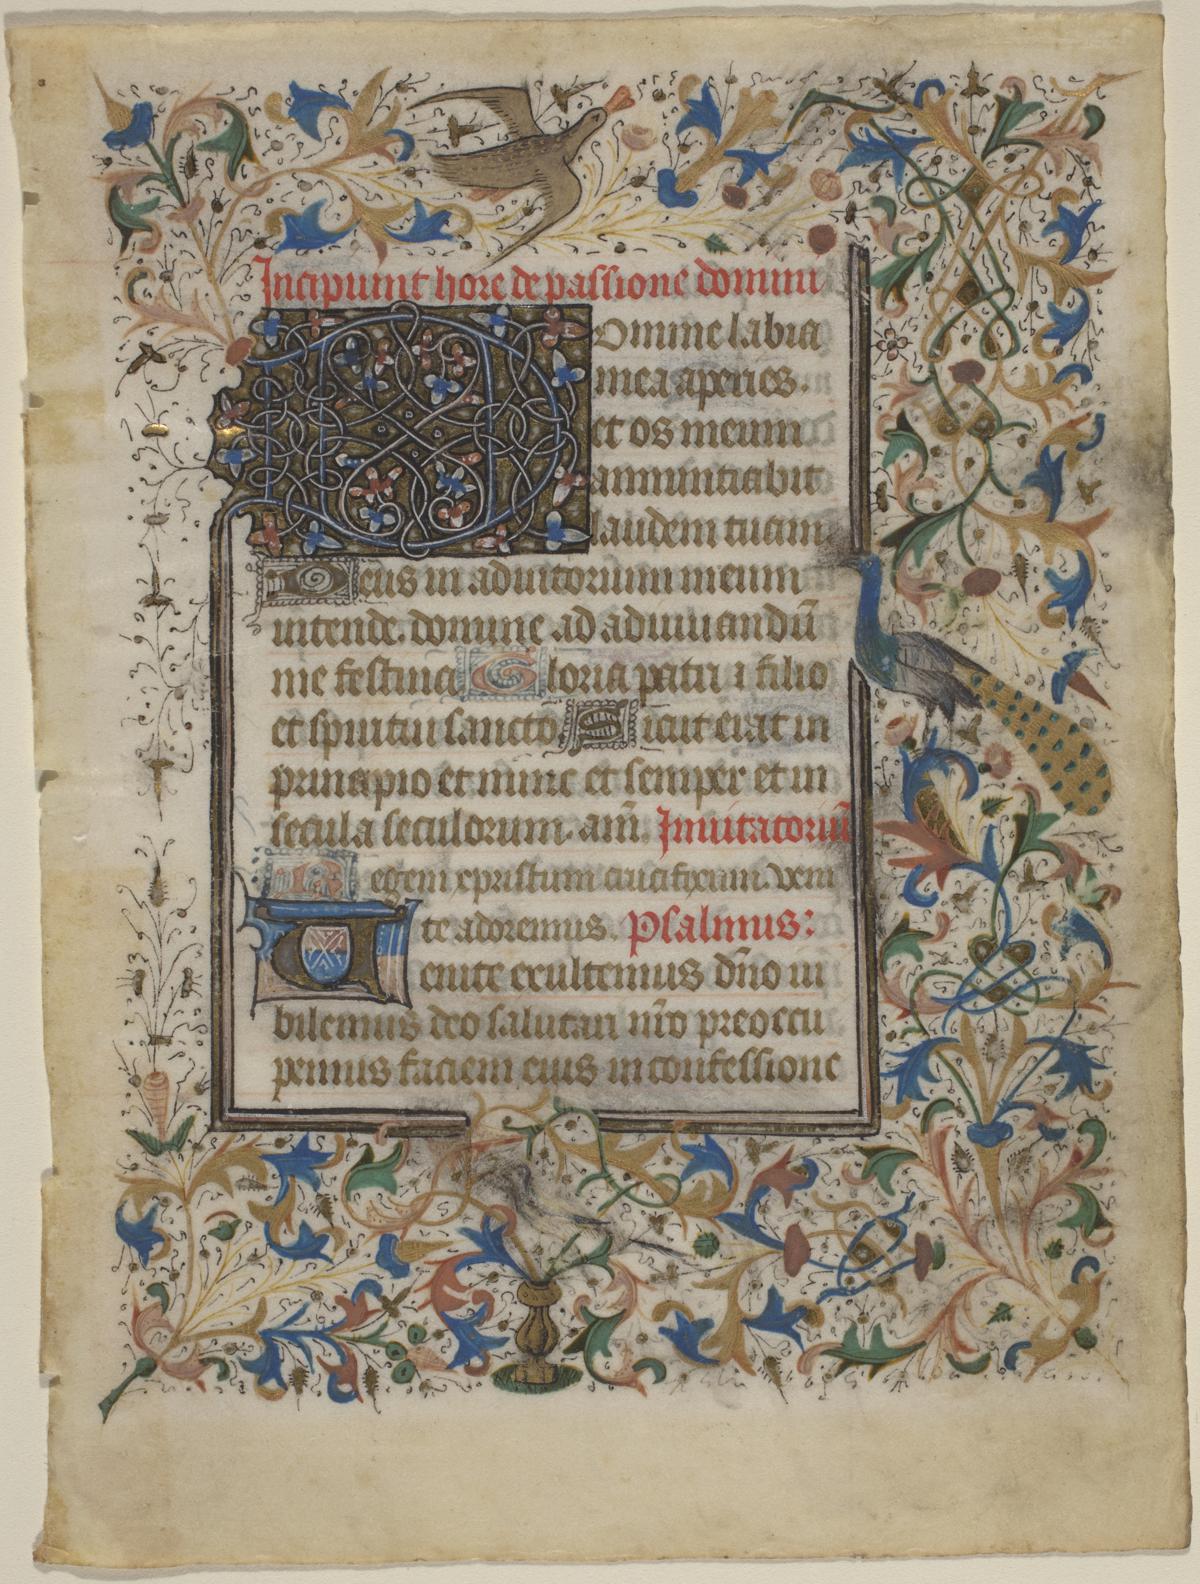 Incipiunt hore de passione domini
Domine labia
mea aperies.
et os meum
annuntiabit
laudem tuam
Deus in adiutorium meum
intende. domine ad adiuuandū
me festina Gloria patri ⁊ filio
et spiritui sancto Sicut erat in
principio et nunc et semper et in
secula seculorum. am̄. Inuitatoriū
Regem xpristum crucifixum. veni
te adoremus. Psalmus:
Uenite exultemus dn̄o iu
bilemus deo salutari nr̄o preoccu
pemus faciem eius in confessione